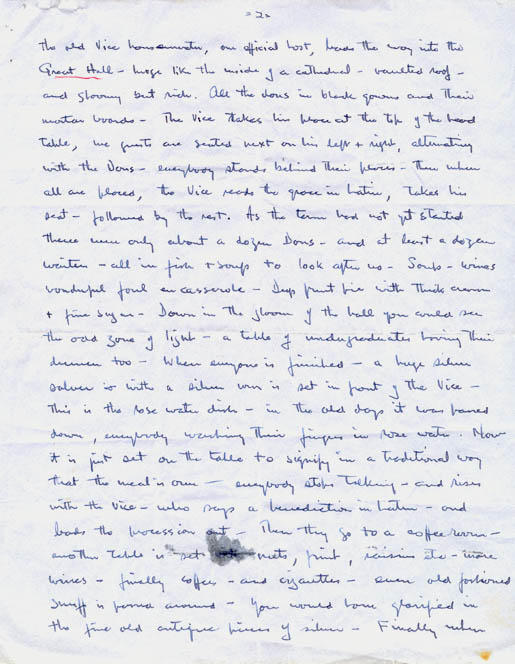 -2-
the old Vice , our official host, leads the way into the
Great Hall - huge like the inside of a cathedral - vaulted roof -
and gloomy but rich. All the dons in black gowns and their
mortar boards - The Vice takes his place at the top of the head
table, we guests are seated next on his left + right, alternating
with the Dons - everybody stands behind their places - then when
all are placed, the Vice reads the grace in Latin, takes his
seat - followed by the rest. As the term had not yet started
there were only about a dozen Dons - and at least a dozen
waiters - all in + to look after us - Soup - wines
wonderful fowl en casserole - Deep fruit pie with thick cream
+ fine sugar - Down in the gloom of the hall you could see
the odd zone of light - a table of undergraduates having their
dinner too - When everyone is finished - a huge silver
salver with a silver urn is set in front of the Vice -
This is the rose water dish - in the old days it was passed
down, everybody washing their fingers in rose water. Now
it is just set on the table to signify in a traditional way
that the meal is over - everybody stops talking - and rises
with the Vice - who says a benediction in Latin - and
leads the procession out - Then they go to a coffee room -
another table is set nuts, fruit, raisins etc - more
wines - finally coffee - and cigarettes - even old fashioned
snuff is passed around - You would have glorified in
the fine old antique pieces of silver - Finally when